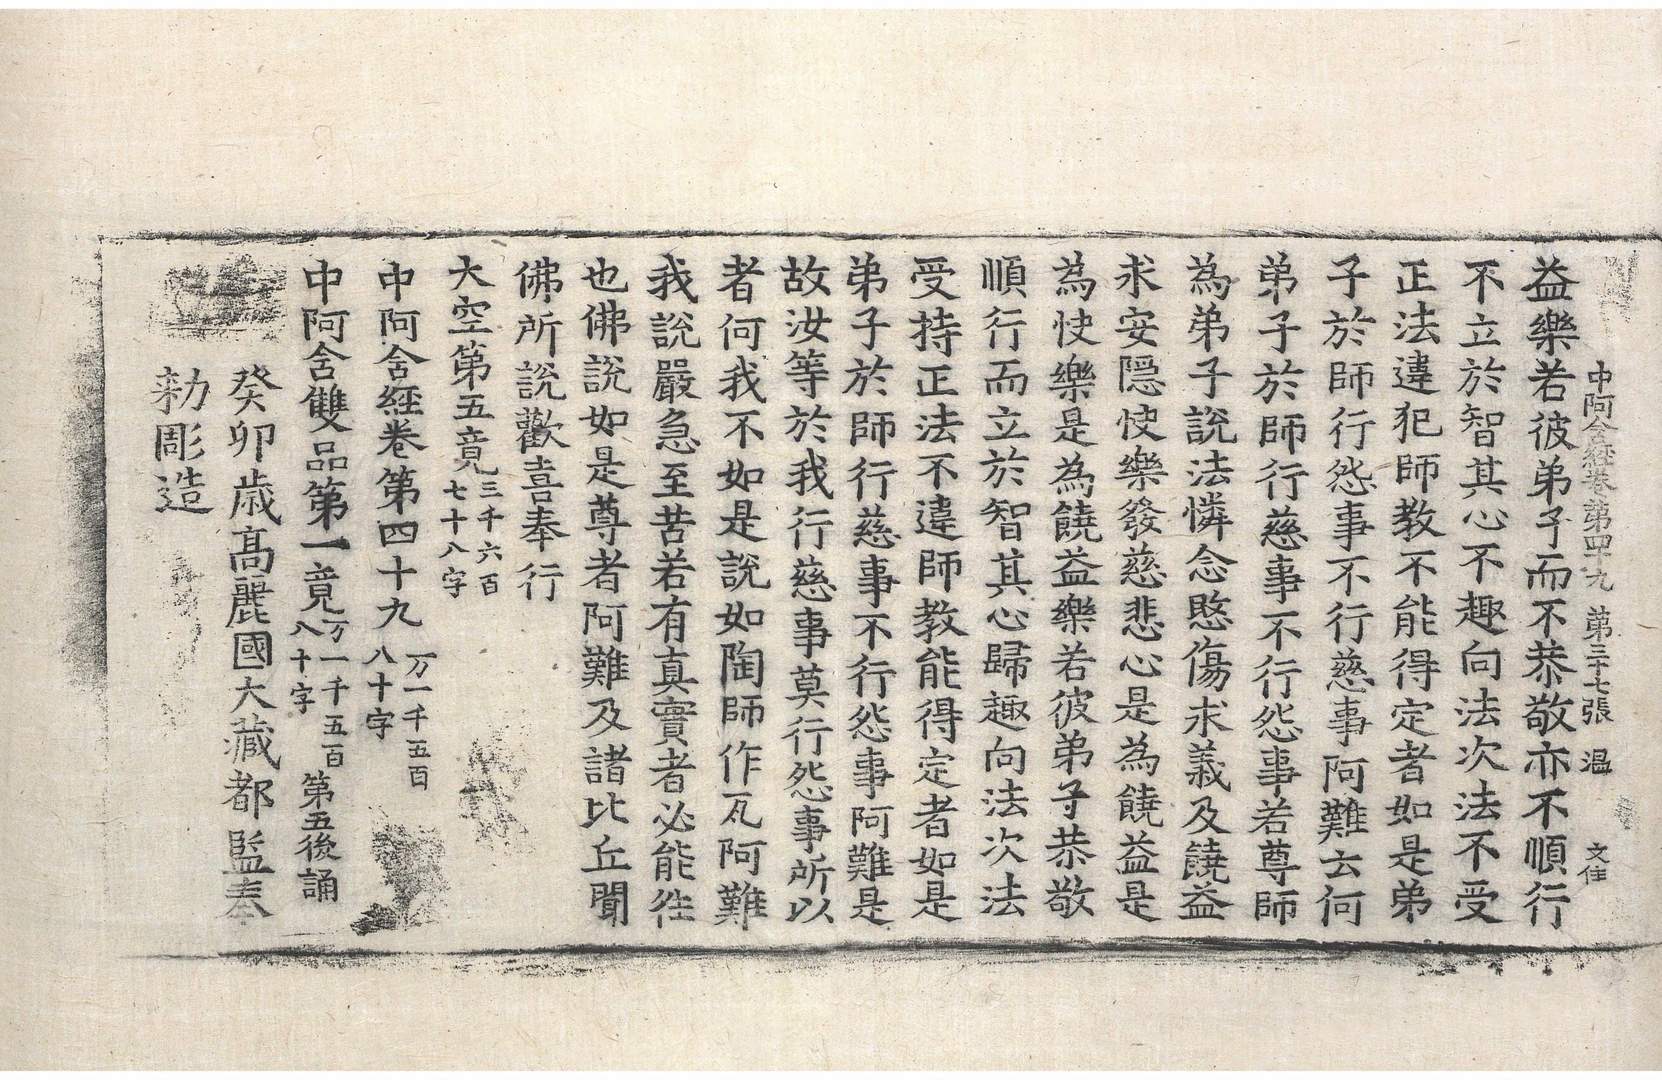 中阿含經卷第四十九 第三十七張 溫 文佳
益樂若彼弟子而不恭敬亦不順行
不立於智其心不趣向法次法不受
正法違犯師教不能得定者如是弟
子於師行怨事不行慈事阿難云何
弟子於師行慈事不行怨事若尊師
為弟子說法憐念愍傷求義及饒益
求安隱快樂發慈悲心是為饒益是
為快樂是為饒益樂若彼弟子恭敬
順行而立於智其心歸趣向法次法
受持正法不違師教能得定者如是
弟子於師行慈事不行怨事阿難是
故汝等於我行慈事莫行怨事所以
者何我不如是說如陶師作瓦阿難
我說嚴急至苦若有真實者必能徃
也佛說如是尊者阿難及諸比丘聞
佛所說歡喜奉行
大空第五竟三千六百七十八字
中阿含經卷第四十九 万一千五百八十字
中阿含雙品第一竟万一千五百八十字 第五後誦
癸卯歲高麗國大藏都監奉
勅彫造